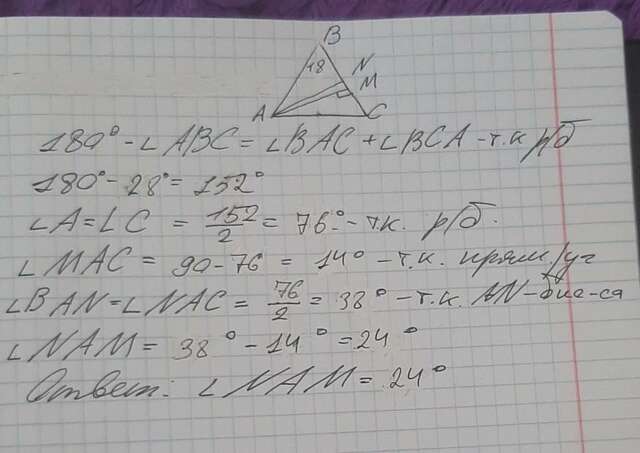 B
18
N
M
A
C
180° - ∠ABC = ∠BAC + ∠BCA - т.к р/б
180° - 28° = 152°
∠A = ∠C = 152/2 = 76° - т.к. р/б.
∠MAC = 90 - 76 = 14° - т.к. прям/уг
∠BAN = ∠NAC = 76/2 = 38° - т.к. AN - бис-са
∠NAM = 38° - 14° = 24°
Ответ: ∠NAM = 24°